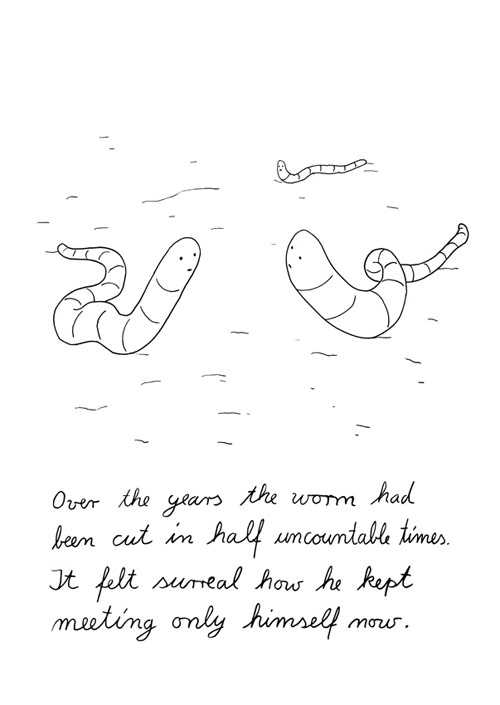 Over the years the worm had
been cut in half uncountable times.
It felt surreal how he kept
meeting only himself now.